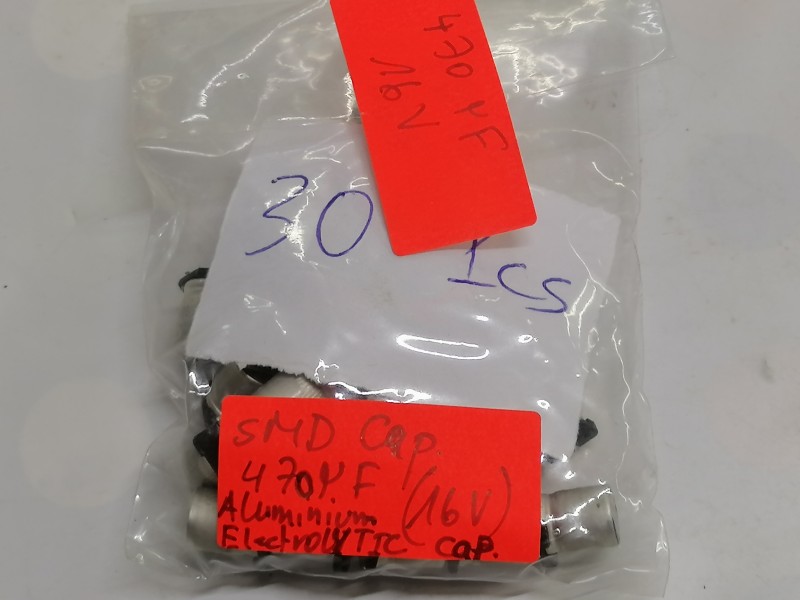 470 µF
16V
30
Ics
SMD Cap.
470µF (16V)
Aluminium
ElectrolYTIC cap.